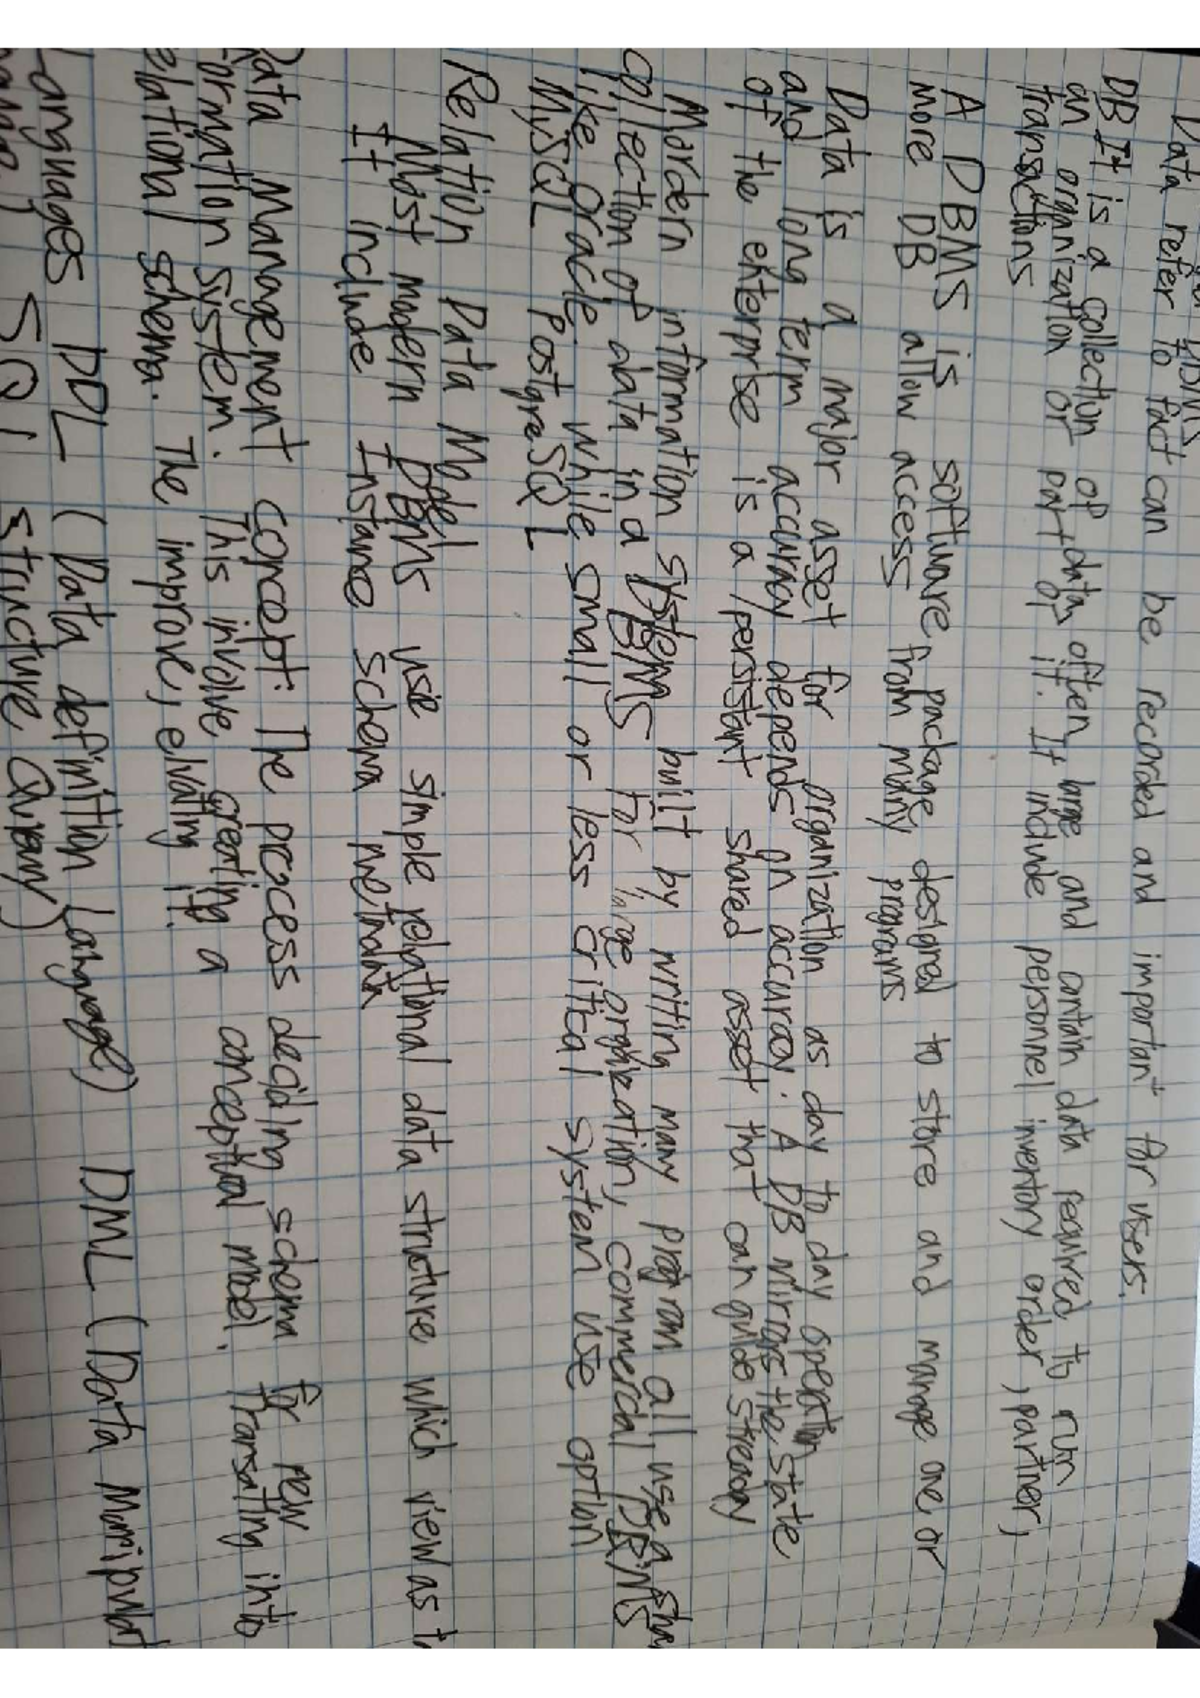 DBMS
Data refer to fact can be recorded and important for users.
DB It is a collection of data, often large and contain data required to run
an organization or part of it. It include personnel inventory order, partner,
transactions
A DBMS is software package designed to store and manage one or
more DB allow access from many programs
Data is a major asset for organization as day to day operation
and long term accuracy depends on accuracy. A DB mirrors the state
of the enterprise is a persistant shared asset that can guide
Mordern information systems built by writing many program all use a
collection of data in a DBMS For large organization, commercial DBMS
like Oracle. while small or less critical system use option
MySQL PostgreSQL
Relation Data Model
Most modern DBMS use simple relational data structure which view as
It include Instance schema metadata
Data Management concept: The process deciding schema for new
formation system. This involve creating a conceptual model. Transating into
relational schema. The improve, elvating it.
Languages DDL (Data definition Language) DML (Data Manipulat
SQL structure